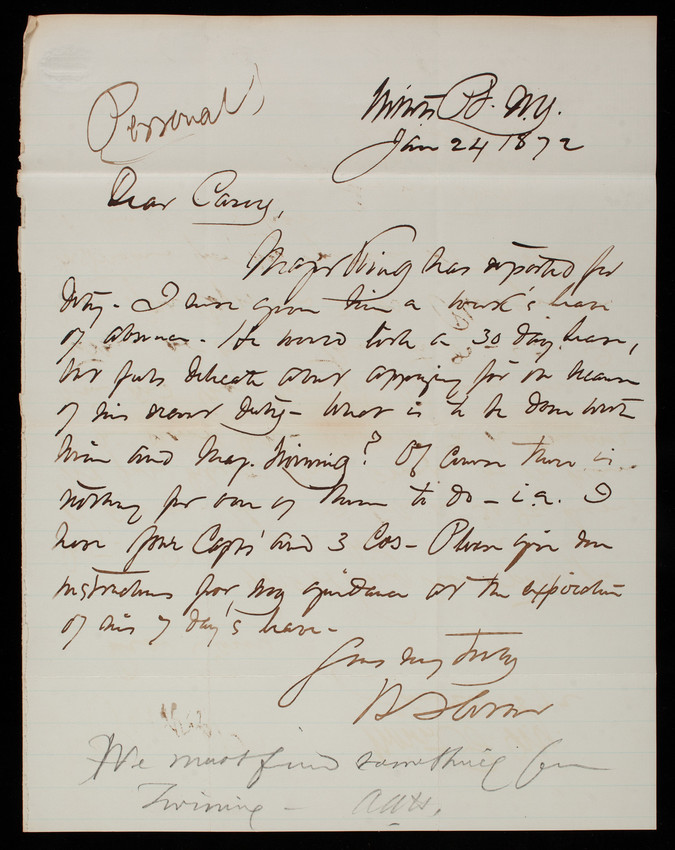 Personal
Willets Pt. N.Y.
Jan 24 1872
Dear Casey,
Major King has reported for
duty - I have given him a week's leave
of absence - He would like a 30 day leave,
but feels delicate about applying for it because
of his recent duty - What is to be done with
him and Maj. Twining? Of course there is
nothing for one of them to do - i.e. I
have four Capts and 3 Cos - Please give me
instructions for my guidance at the expiration
of his 7 day's leave -
Yours very truly
We must find something for
Twining -